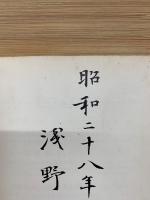 昭和二十八年
浅野